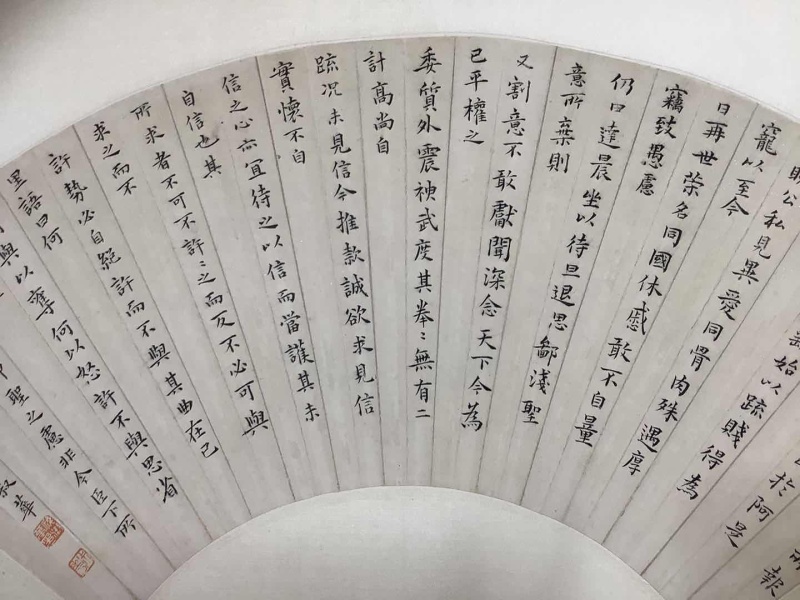 所報
於阿是
始以疏賤得為
公私見異愛同骨肉殊遇厚
寵以至今
日再世榮名同國休慼敢不自量
竊致愚慮
仍日達晨坐以待旦退思鄙淺聖
意所棄則
又割意不敢獻聞深念天下今為
已平權之
委質外震神武度其拳〻無有二
計高尚自
疏况未見信今推款誠欲求見信
實懷不自
信之心亦宜待之以信而當護其未
自信也其
所求者不可不許〻之而反不必可與
求之而不
許勢必自絕許而不與其曲在己
里語曰何
與以奪何以怒許不與思省
聖之慮非今臣下所
叔華